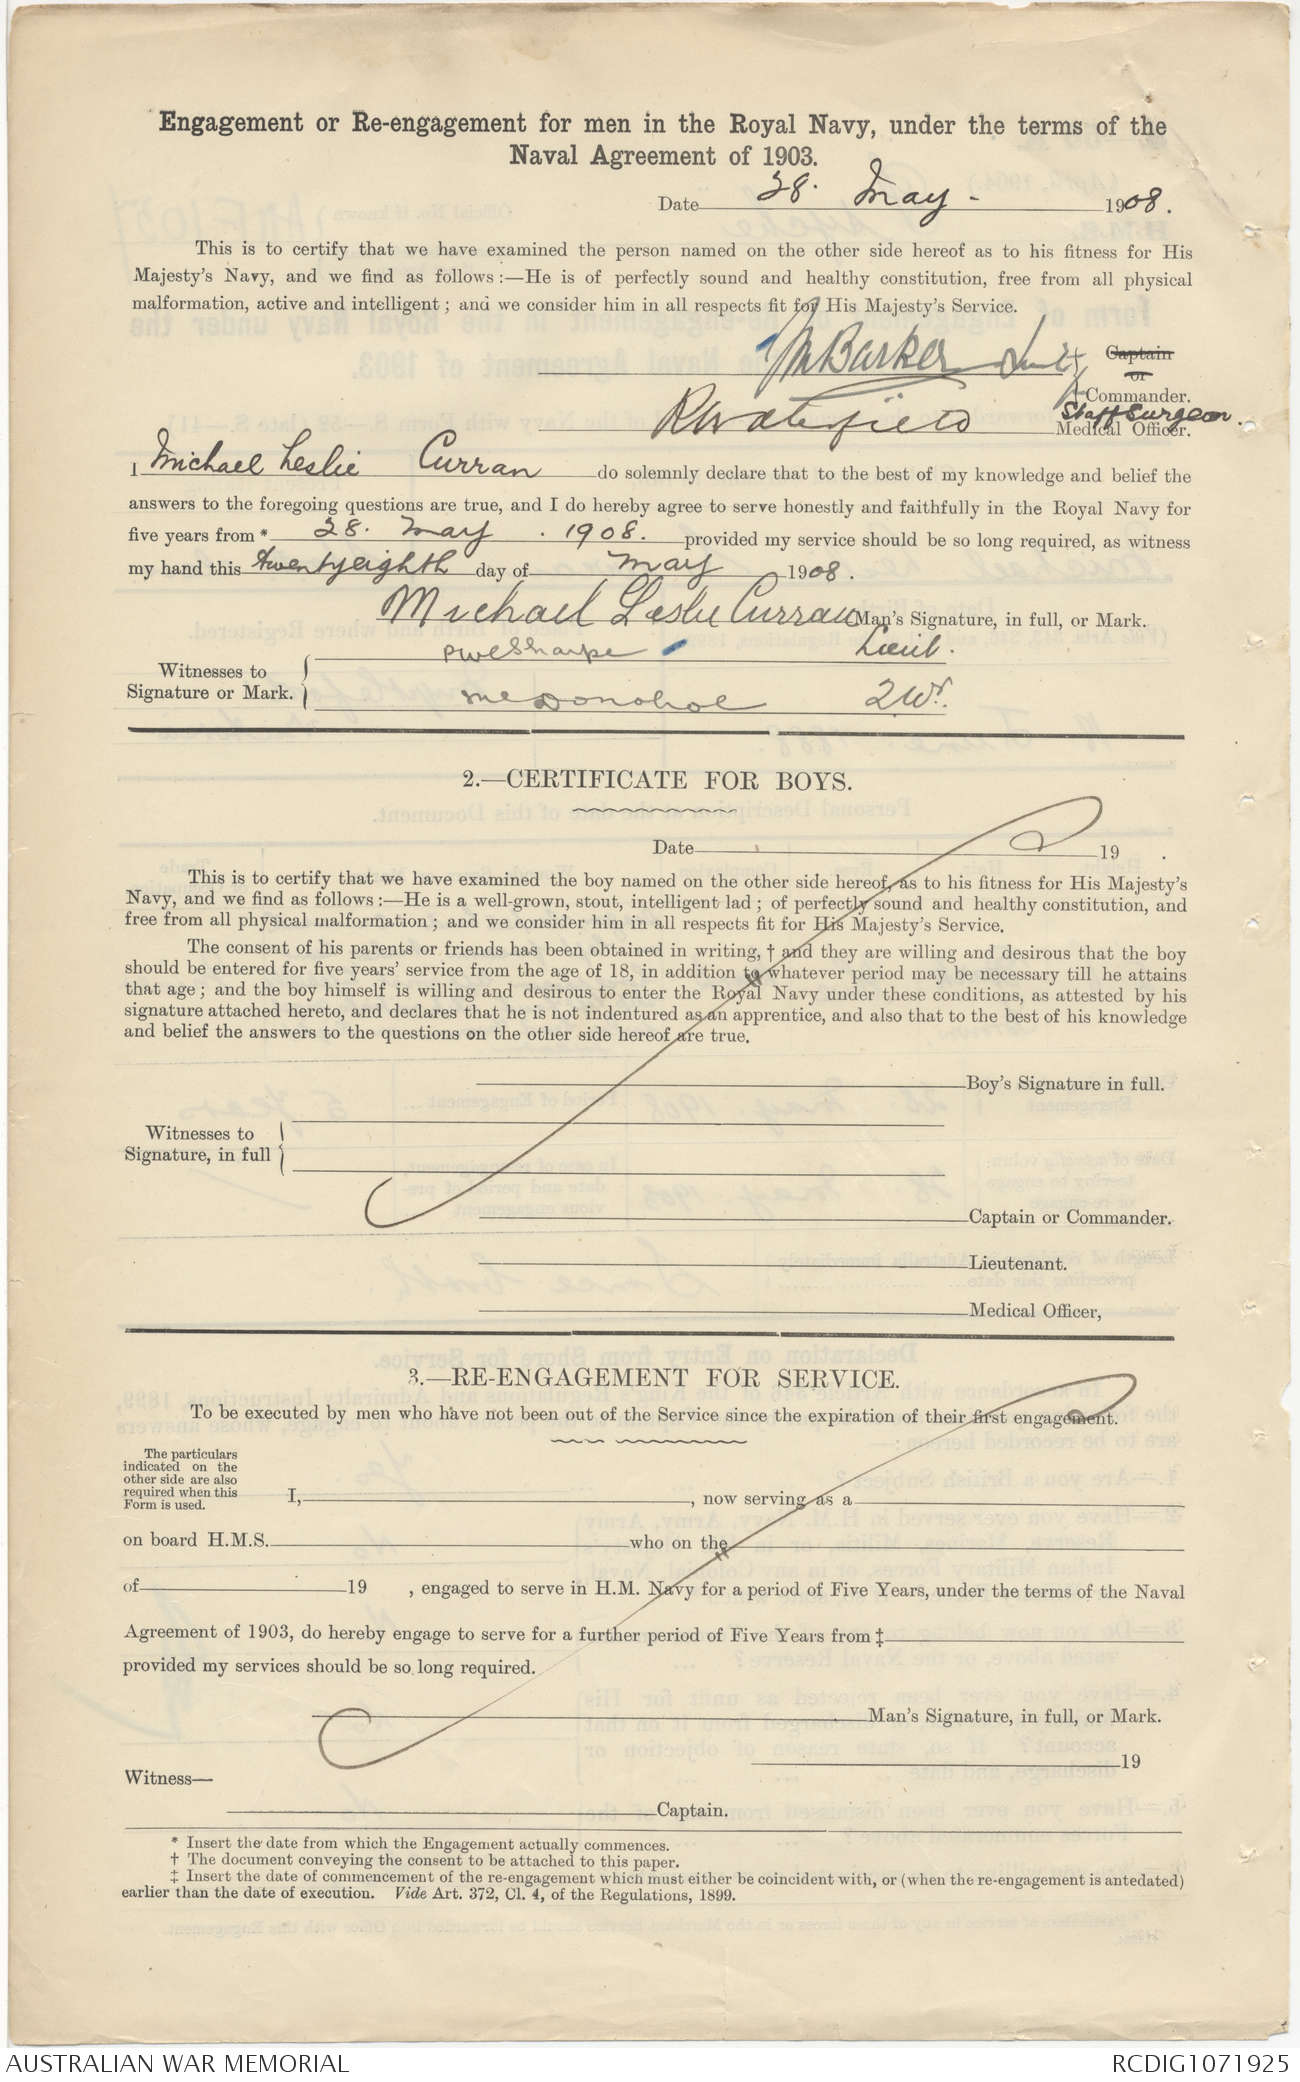 Engagement or Re-engagement for men in the Royal Navy, under the terms of the
Naval Agreement of 1903.
Date 28. May. 1908.
This is to certify that we have examined the person named on the other side hereof as to his fitness for His
Majesty's Navy, and we find as follows:—He is of perfectly sound and healthy constitution, free from all physical
malformation, active and intelligent; and we consider him in all respects fit for His Majesty's Service.
Barker Lieut Captain
or
Commander.
Staff Surgeon.
RWaterfield Medical Officer.
I Michael Leslie Curran do solemnly declare that to the best of my knowledge and belief the
answers to the foregoing questions are true, and I do hereby agree to serve honestly and faithfully in the Royal Navy for
five years from * 28. May. 1908. provided my service should be so long required, as witness
my hand this twentyeighth day of May 1908.
Michael Leslie Curran Man's Signature, in full, or Mark.
Witnesses to
Signature or Mark.
Sharpe Lieut.
McDonohoe 2Wr.
2.—CERTIFICATE FOR BOYS.
Date 19 .
This is to certify that we have examined the boy named on the other side hereof, as to his fitness for His Majesty's
Navy, and we find as follows:—He is a well-grown, stout, intelligent lad; of perfectly sound and healthy constitution, and
free from all physical malformation; and we consider him in all respects fit for His Majesty's Service.
The consent of his parents or friends has been obtained in writing, † and they are willing and desirous that the boy
should be entered for five years' service from the age of 18, in addition to whatever period may be necessary till he attains
that age; and the boy himself is willing and desirous to enter the Royal Navy under these conditions, as attested by his
signature attached hereto, and declares that he is not indentured as an apprentice, and also that to the best of his knowledge
and belief the answers to the questions on the other side hereof are true.
Boy's Signature in full.
Witnesses to
Signature, in full
Captain or Commander.
Lieutenant.
Medical Officer,
3.—RE-ENGAGEMENT FOR SERVICE.
To be executed by men who have not been out of the Service since the expiration of their first engagement.
The particulars
indicated on the
other side are also
required when this
Form is used.
I, , now serving as a
on board H.M.S. who on the
of 19 , engaged to serve in H.M. Navy for a period of Five Years, under the terms of the Naval
Agreement of 1903, do hereby engage to serve for a further period of Five Years from ‡
provided my services should be so long required.
Man's Signature, in full, or Mark.
19
Witness—
Captain.
* Insert the date from which the Engagement actually commences.
† The document conveying the consent to be attached to this paper.
‡ Insert the date of commencement of the re-engagement which must either be coincident with, or (when the re-engagement is antedated)
earlier than the date of execution. Vide Art. 372, Cl. 4, of the Regulations, 1899.
AUSTRALIAN WAR MEMORIAL RCDIG1071925